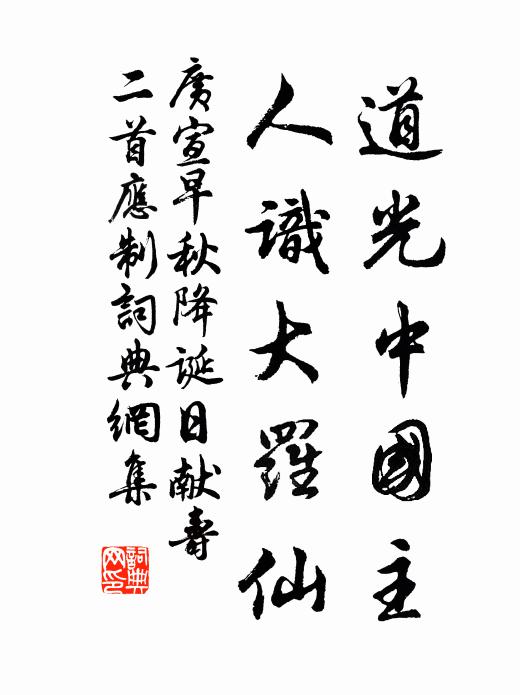 道光中國主
人識大羅仙
廣宣早秋降誕日献壽
二首應制詞典網集
詞典
网印